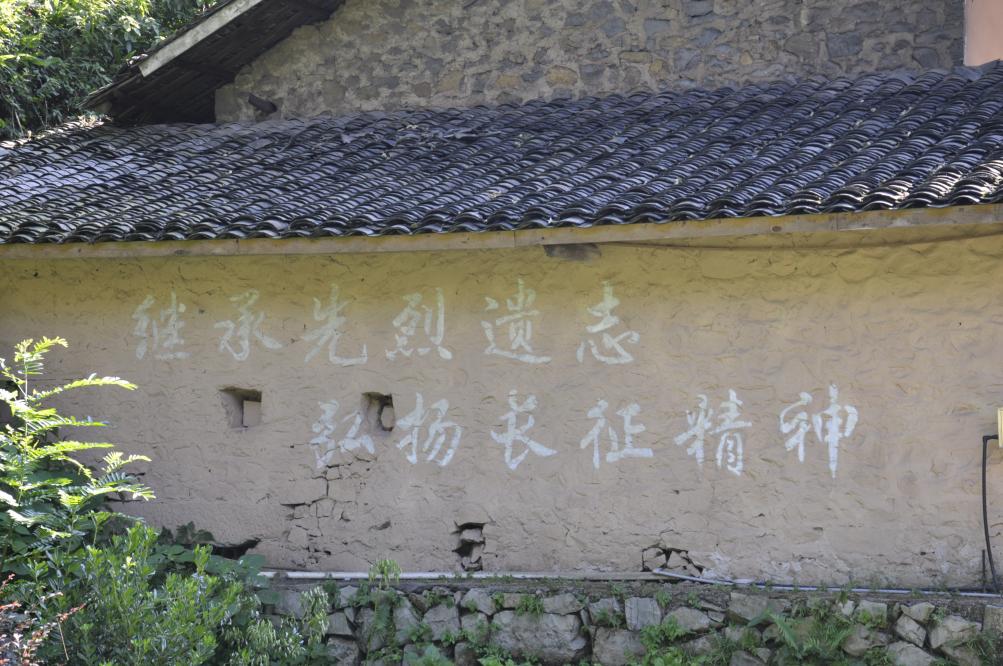 继承先烈遗志
弘扬长征精神